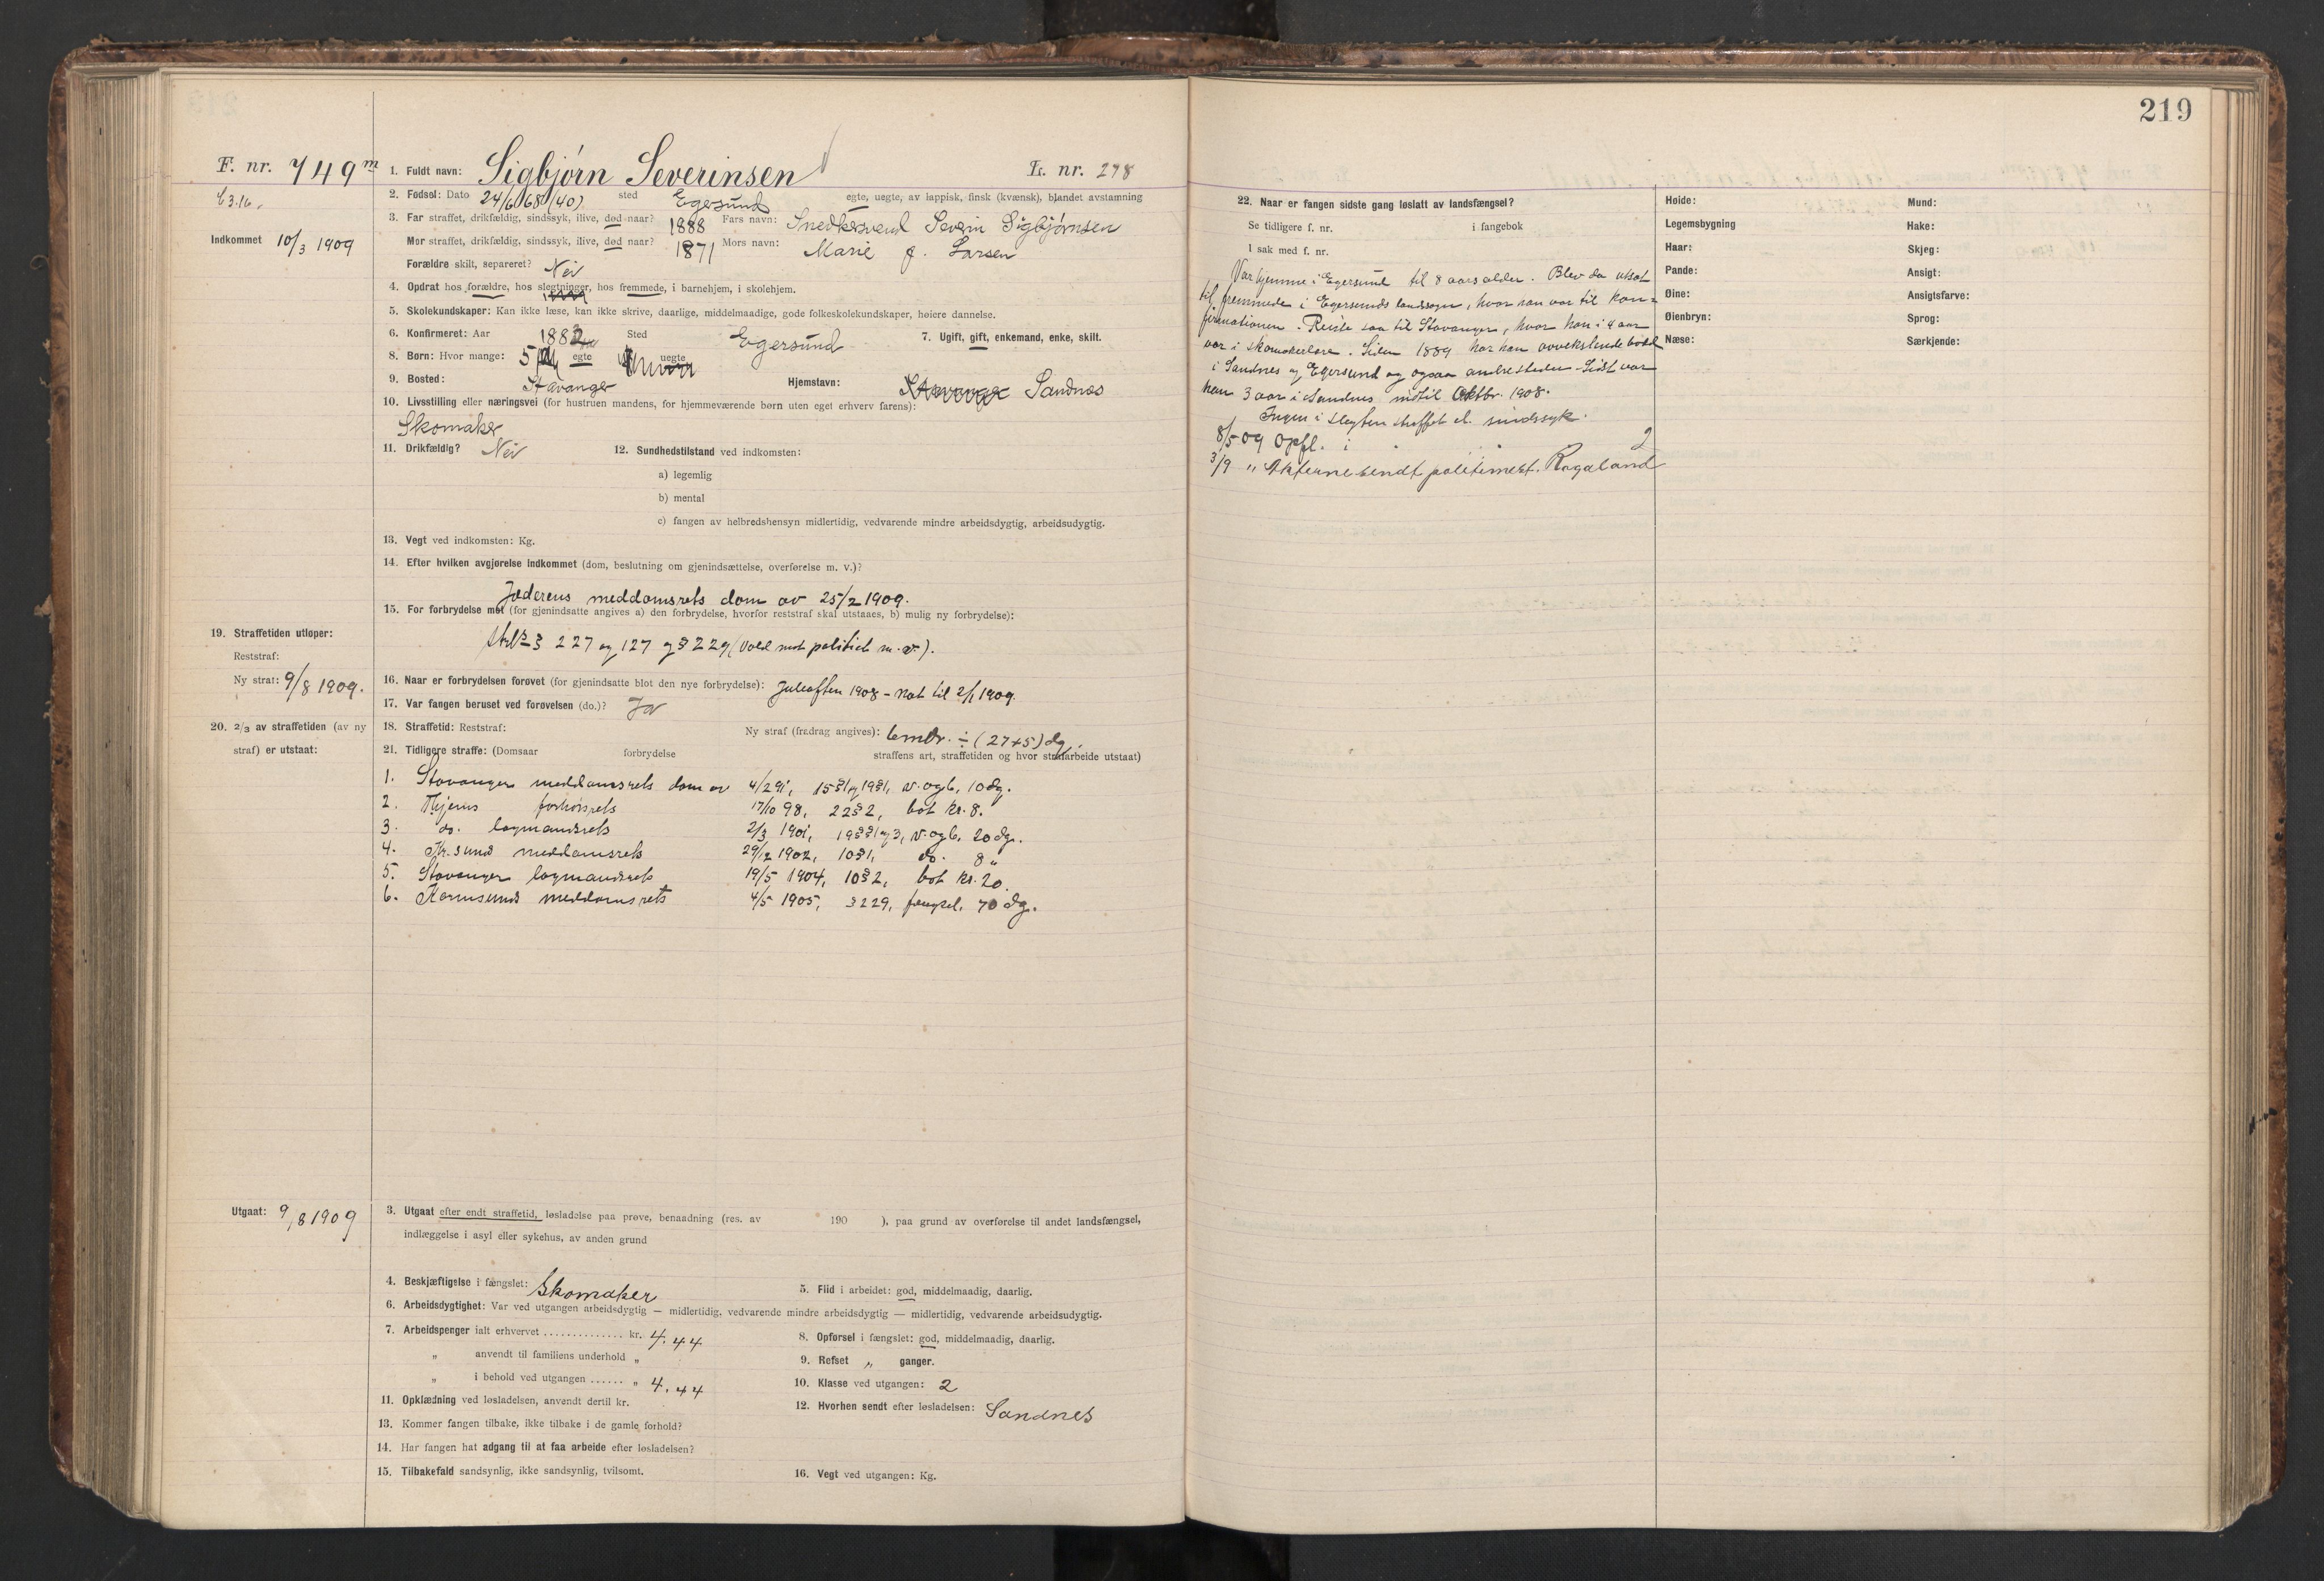 219
F. nr. 749 m
1. Fuldt navn: Sigbjørn Severinsen
L. nr. 298
E 3.16.
2. Fødsel: Dato 24/6 68 (40) sted Egersund egte, uegte, av lappisk, finsk (kvænsk), blandet avstamning
Indkommet 10/3 1909
3. Far straffet, drikfældig, sindssyk, ilive, død naar? 1888 Fars navn: Snedkersvend Severin Sigbjørnsen
Mor straffet, drikfældig, sindssyk, ilive, død naar? 1871 Mors navn: Marie J. Larsen
Forældre skilt, separeret? Nei
4. Opdrat hos forældre, hos slegtninger, hos fremmede, i barnehjem, i skolehjem.
5. Skolekundskaper: Kan ikke læse, kan ikke skrive, daarlige, middelmaadige, gode folkeskolekundskaper, høiere dannelse.
6. Konfirmeret: Aar 1883 Sted Egersund 7. Ugift, gift, enkemand, enke, skilt.
8. Børn: Hvor mange: 5 egte uegte
9. Bosted: Stavanger Hjemstavn: Stavanger Sandnes
10. Livsstilling eller næringsvei (for hustruen mandens, for hjemmeværende børn uten eget erhverv farens):
Skomaker
11. Drikfældig? Nei 12. Sundhedstilstand ved indkomsten:
a) legemlig
b) mental
c) fangen av helbredshensyn midlertidig, vedvarende mindre arbeidsdygtig, arbeidsudygtig.
13. Vegt ved indkomsten: Kg.
14. Efter hvilken avgjørelse indkommet (dom, beslutning om gjenindsættelse, overførelse m. v.)?
Jæderens meddomsrets dom av 25/2 1909.
15. For forbrydelse mot (for gjenindsatte angives a) den forbrydelse, hvorfor reststraf skal utstaaes, b) mulig ny forbrydelse):
19. Straffetiden utløper:
Strl § 227 og 127 og § 229 (Vold mot politiet m. v.).
Reststraf:
Ny straf: 9/8 1909.
16. Naar er forbrydelsen forøvet (for gjenindsatte blot den nye forbrydelse): Juleaften 1908 – nat til 2/1 1909.
17. Var fangen beruset ved forøvelsen (do.)? Ja
20. 2/3 av straffetiden (av ny straf) er utstaat:
18. Straffetid: Reststraf: Ny straf (fradrag angives): 6 mdr. ÷ (27+5) dg.
21. Tidligere straffe: (Domsaar forbrydelse straffens art, straffetiden og hvor strafarbeide utstaat)
1. Stavanger meddomsrets dom av 4/2 91, 15 § 1 og 19 § 1, v. og b. 10 dg.
2. forhørsrets 17/10 98, 22 § 2, bot kr. 8.
3. do. lagmandsrets 2/3 1901, 19 § 1 og 3, v. og b. 20 dg.
4. Kr.sund meddomsrets 29/12 1902, 10 § 1, do. 8 "
5. Stavanger lagmandsrets 19/5 1904, 10 § 2, bot kr. 20.
6. Karmsund meddomsrets 4/5 1905, § 229, fængsel, 70 dg.
Utgaat: 9/8 1909
3. Utgaat efter endt straffetid, løsladelse paa prøve, benaadning (res. av 190 ), paa grund av overførelse til andet landsfængsel,
indlæggelse i asyl eller sykehus, av anden grund
4. Beskjæftigelse i fængslet: Skomaker 5. Flid i arbeidet: god, middelmaadig, daarlig.
6. Arbeidsdygtighet: Var ved utgangen arbeidsdygtig — midlertidig, vedvarende mindre arbeidsdygtig — midlertidig, vedvarende arbeidsudygtig.
7. Arbeidspenger ialt erhvervet .............. kr. 4.44 8. Opførsel i fængslet: god, middelmaadig, daarlig.
" anvendt til familiens underhold " 9. Refset " ganger.
" i behold ved utgangen ...... " 4.44 10. Klasse ved utgangen: 2
11. Opklædning ved løsladelsen, anvendt dertil kr. 12. Hvorhen sendt efter løsladelsen: Sandnes
13. Kommer fangen tilbake, ikke tilbake i de gamle forhold?
14. Har fangen hat adgang til at faa arbeide efter løsladelsen?
15. Tilbakefald sandsynlig, ikke sandsynlig, tvilsomt. 16. Vegt ved utgangen: Kg.
22. Naar er fangen sidste gang løslatt av landsfængsel?
Se tidligere f. nr. i fangebok
I sak med f. nr.
Var hjemme i Egersund til 8 aars alder. Blev da utsat
til fremmede i Egersunds landsogn, hvor han var til kon-
firmationen. Reiste saa til Stavanger, hvor han i 4 aar
var i skomakerlære. Siden 1889 har han avvekslende bodd
i Sandnes og Egersund og ogsaa andre steder. Sidst var
han 3 aar i Sandnes indtil Oktbr. 1908.
Ingen i slegten straffet el. sindssyk.
8/5 09 Opfl. i 2
3/9 " Akterne sendt politimest. Rogaland
Høide: Mund:
Legemsbygning Hake:
Haar: Skjeg:
Pande: Ansigt:
Øine: Ansigtsfarve:
Øienbryn: Sprog:
Næse: Særkjende: